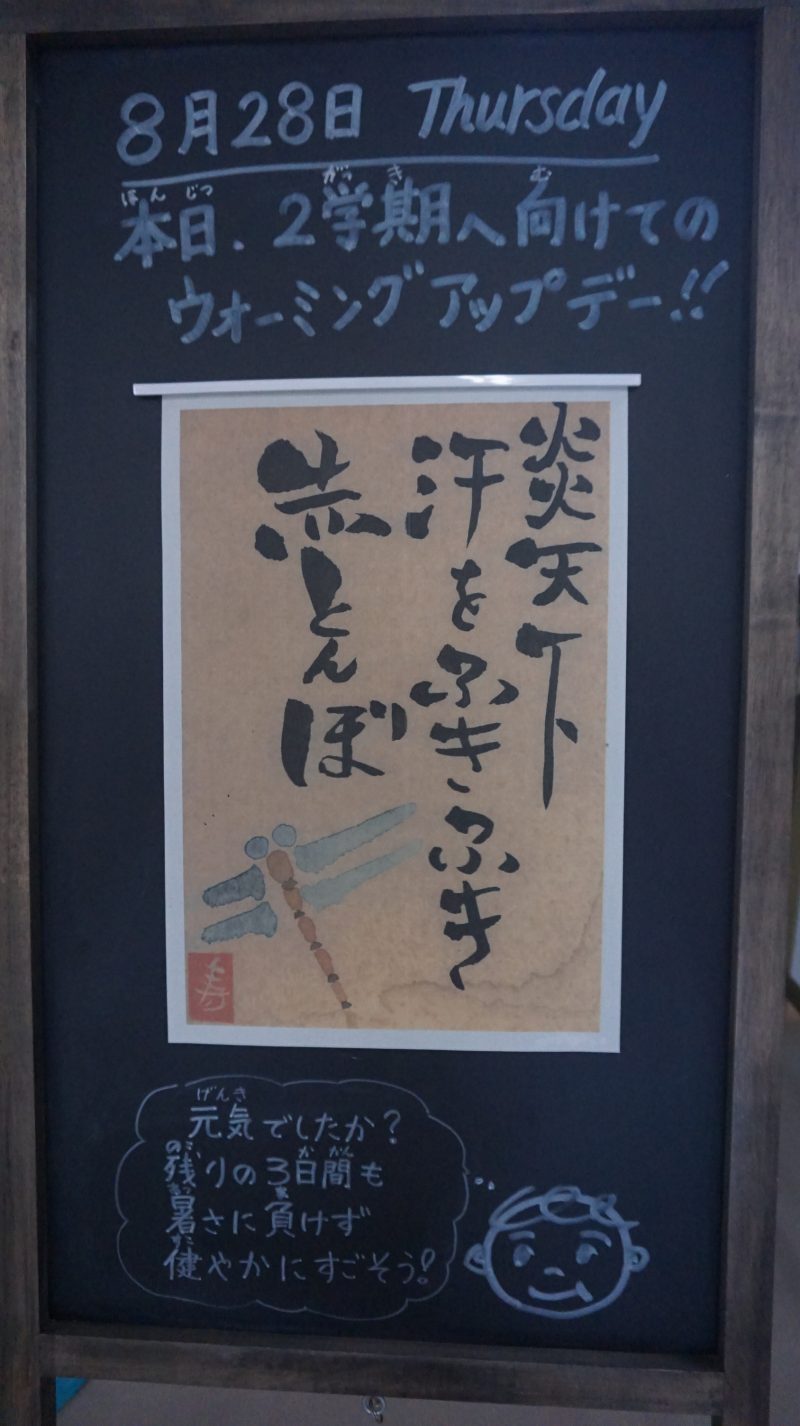 8月28日 Thursday
本日、2学期へ向けての
ウォーミングアップデー!!
炎天下
汗をふきふき
赤とんぼ
寿
元気でしたか?
残りの3日間も
暑さに負けず
健やかにすごそう!